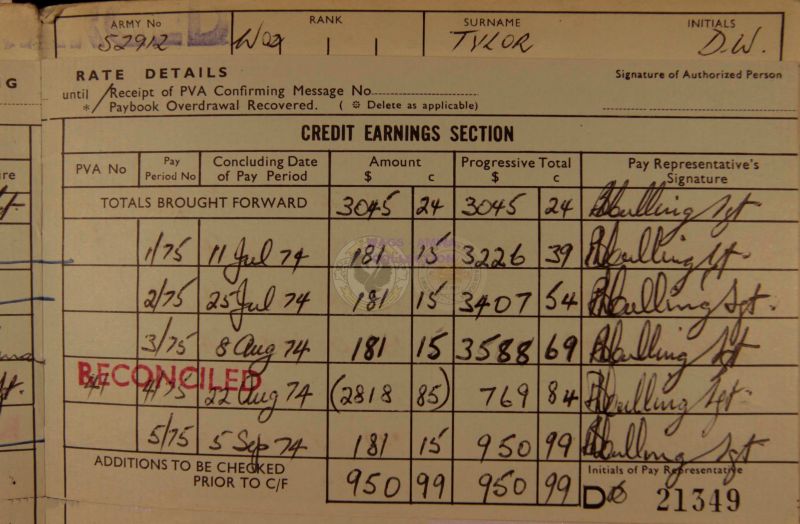 ARMY No RANK SURNAME INITIALS
52912 WO2 TYLOR D.W.
RATE DETAILS
Signature of Authorized Person
until Receipt of PVA Confirming Message No
*/ Paybook Overdrawal Recovered. ( * Delete as applicable)
CREDIT EARNINGS SECTION
PVA No Pay Period No Concluding Date of Pay Period Amount $ c Progressive Total $ c Pay Representative's Signature
TOTALS BROUGHT FORWARD 3045 24 3045 24 Sgt
1/75 11 Jul 74 181 15 3226 39
2/75 25 Jul 74 181 15 3407 54 Sgt.
3/75 8 Aug 74 181 15 3588 69 Sgt
RECONCILED
4/75 22 Aug 74 (2818 85) 769 84 Sgt.
5/75 5 Sep 74 181 15 950 99 Sgt
ADDITIONS TO BE CHECKED PRIOR TO C/F 950 99 950 99 Initials of Pay Representative
D 21349